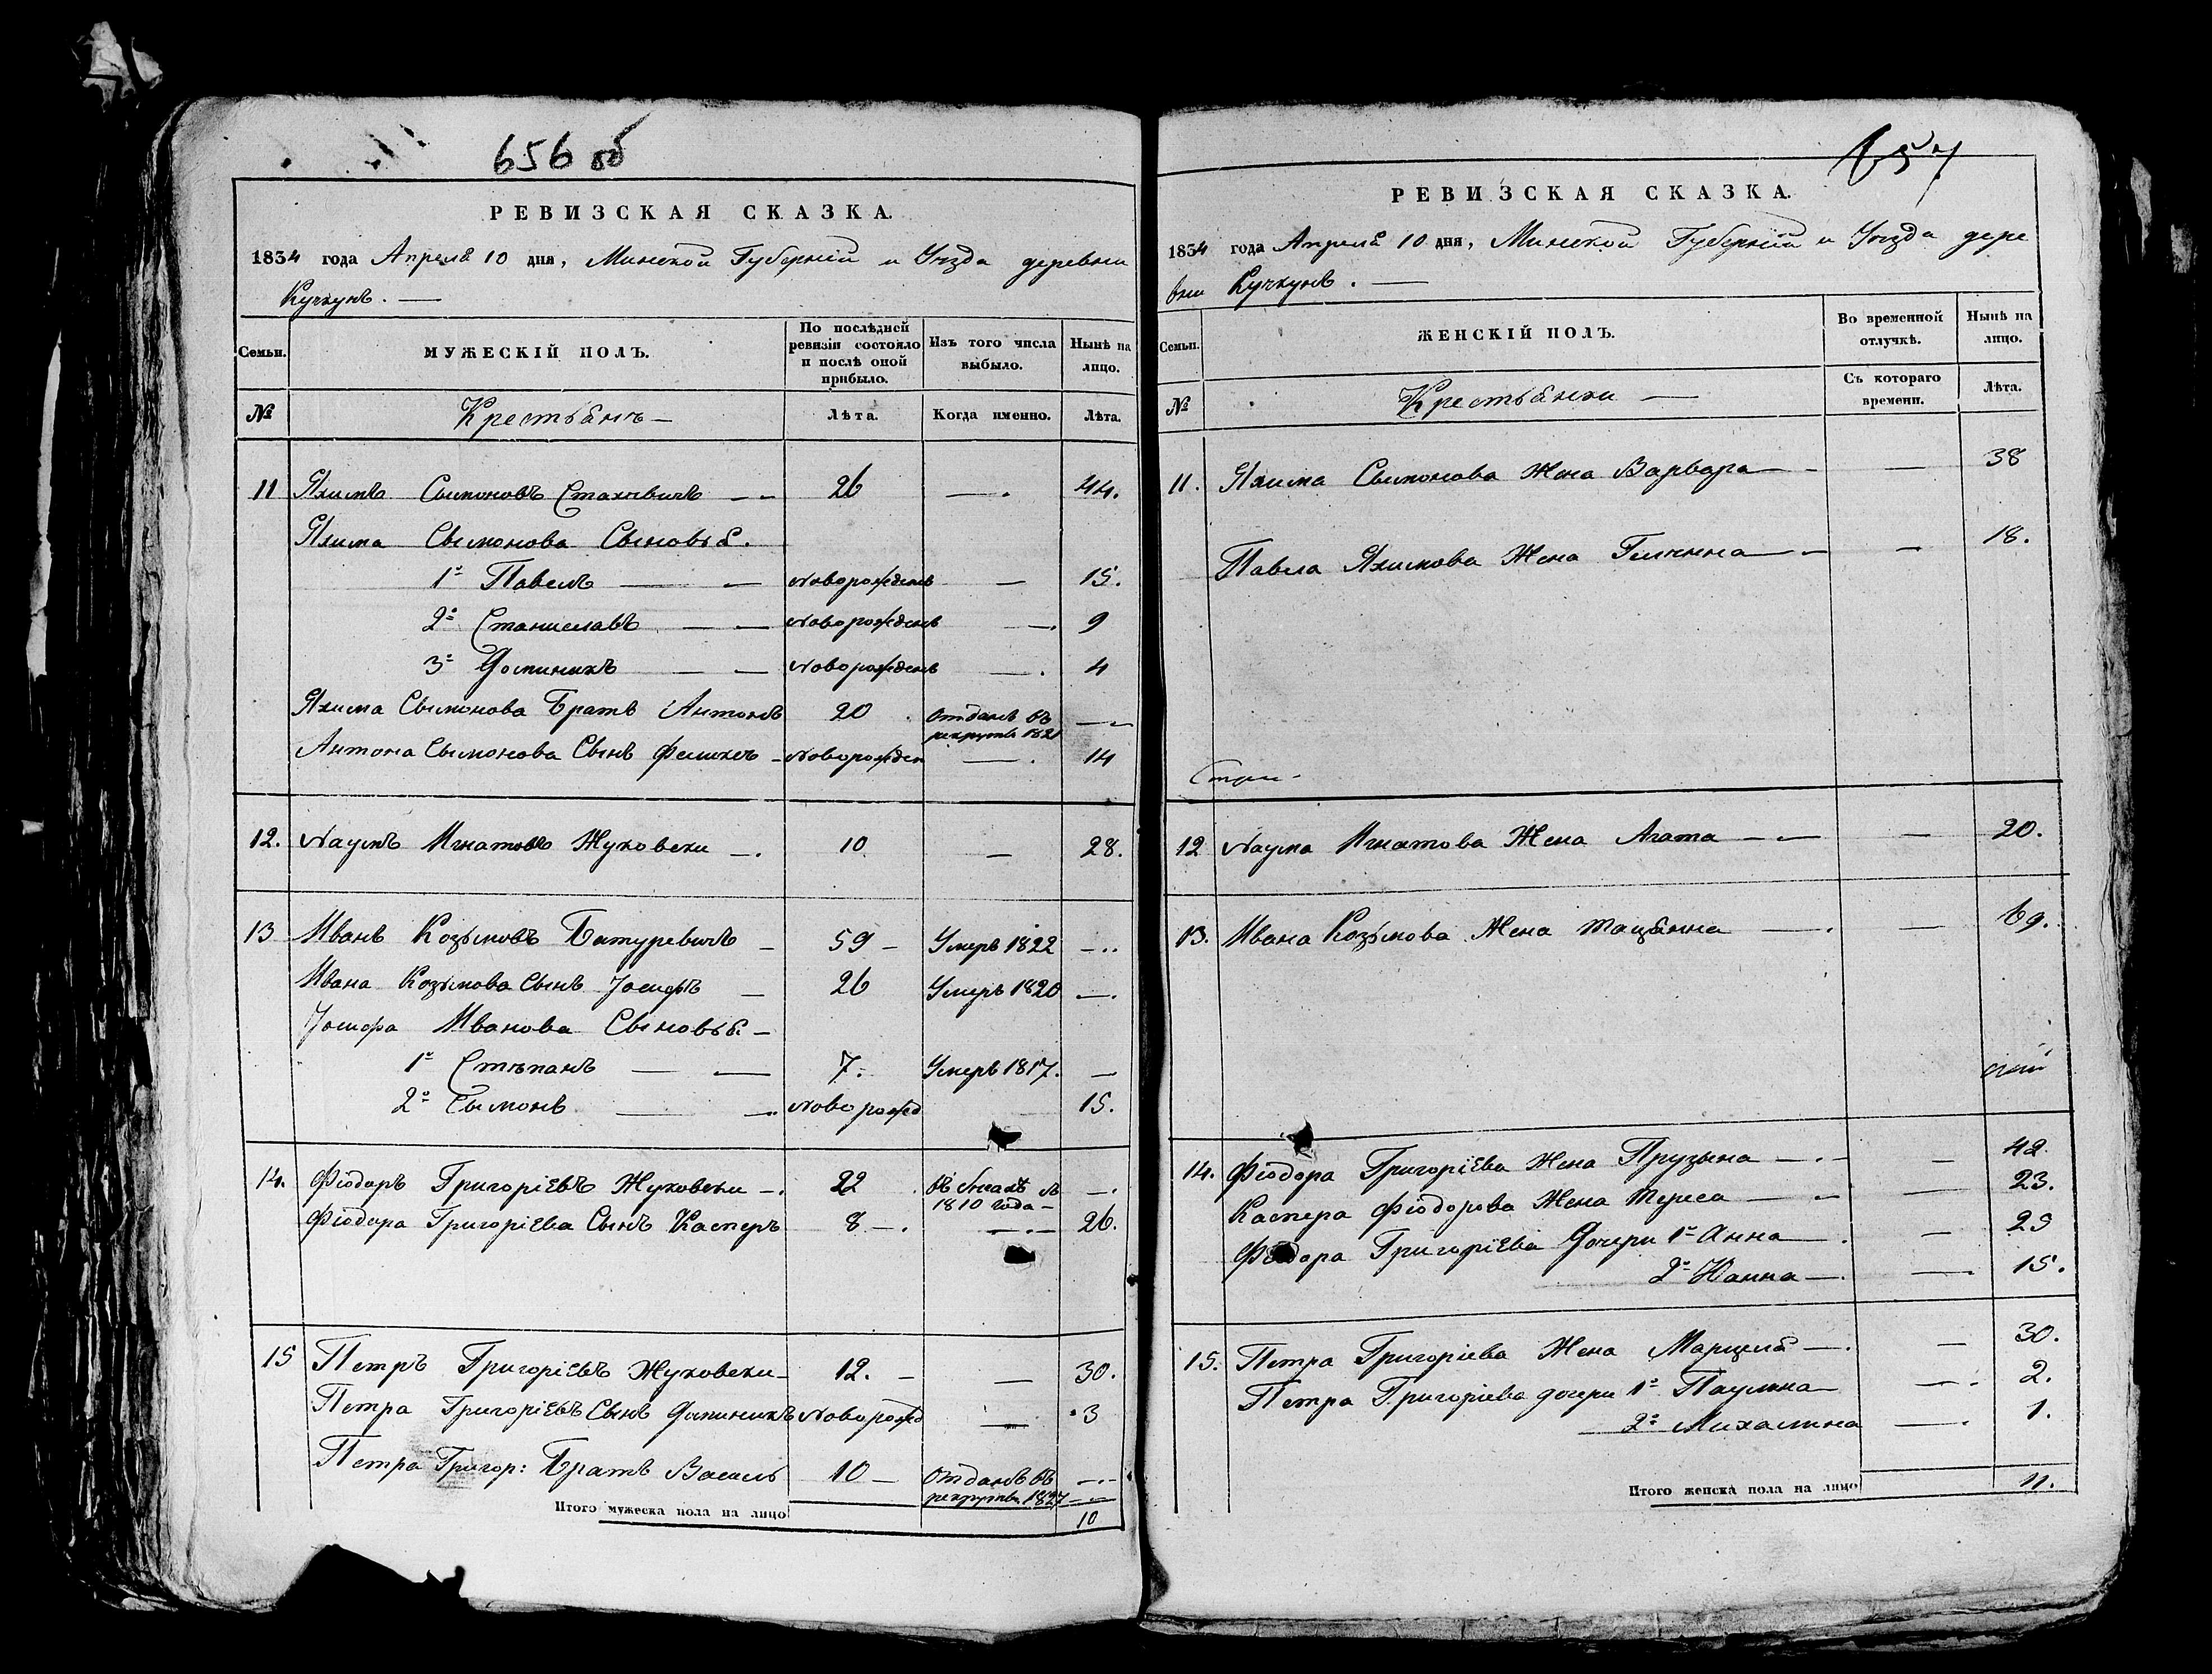 656 об
РЕВИЗСКАЯ СКАЗКА.
1834 года Апреля 10 дня, Минской Губерніи и Уѣзда деревни
Кучкунъ. —
Семьи. МУЖЕСКІЙ ПОЛЪ. По послѣдней ревизіи состояло и послѣ оной прибыло. Изъ того числа выбыло. Нынѣ на лицо.
№ Крестьянъ — Лѣта. Когда именно. Лѣта.
11 Яхимъ Сымоновъ Стахевичъ — 26 — 44.
Яхима Сымонова Сыновья.
1й Павелъ — новорожденъ — 15.
2й Станиславъ — новорожденъ — 9
3й Доминикъ — новорожденъ — 4
Яхима Сымонова Братъ Антонъ 20 отданъ въ рекруты 1821 —
Антона Сымонова Сынъ Феликсъ — новорожден — 14
12. Наумъ Игнатовъ Жуковски — 10 — 28.
13 Иванъ Козьмовъ Батуревичъ — 59 — Умеръ 1822 —
Ивана Козьмова Сынъ Іосифъ — 26 Умеръ 1820 —
Іосифа Иванова Сыновья —
1й Стѣпанъ — 7. Умеръ 1817. —
2й Сымонъ — новорожд 15.
14. Фіодоръ Григоріевъ Жуковски — 22 1810 года — —
Фіодора Григоріева Сынъ Касперъ 8 — — 26.
15 Петръ Григоріевъ Жуковски — 12. — — 30.
Петра Григоріевъ Сынъ Доминикъ новорожд — 3
Петра Григор: Братъ Василь 10 — отданъ въ рекруты 1827 —
Итого мужеска пола на лицо 10
657
РЕВИЗСКАЯ СКАЗКА.
1834 года Апреля 10 дня, Минской Губерніи и Уѣзда дере
вни Кучкунъ. —
Семьи. ЖЕНСКІЙ ПОЛЪ. Во временной отлучкѣ. Нынѣ на лицо.
№ Крестьянки — Съ котораго времени. Лѣта.
11. Яхима Сымонова Жена Варвара — — 38
Павла Яхимова Жена — — 18.
12 Наума Игнатова Жена Агата — — 20.
13. Ивана Козьмова Жена Тацянна — — 69.
14. Фіодора Григоріева Жена Прузына — — 42.
Каспера Фіодорова Жена Тереса — — 23.
Фіодора Григоріева Дочери 1я Анна — — 25
2я Юанна — — 15.
15. Петра Григоріева Жена Марцеля — — 30.
Петра Григоріева дочери 1я Паулина — — 2.
2я Михалина — 1.
Итого женска пола на лицо 11.